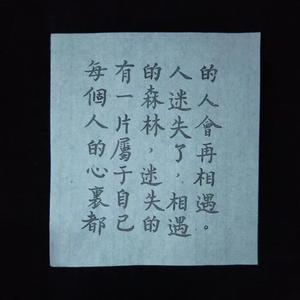 每個人的心裏都
有一片屬于自己
的森林，迷失的
人迷失了，相遇
的人會再相遇。